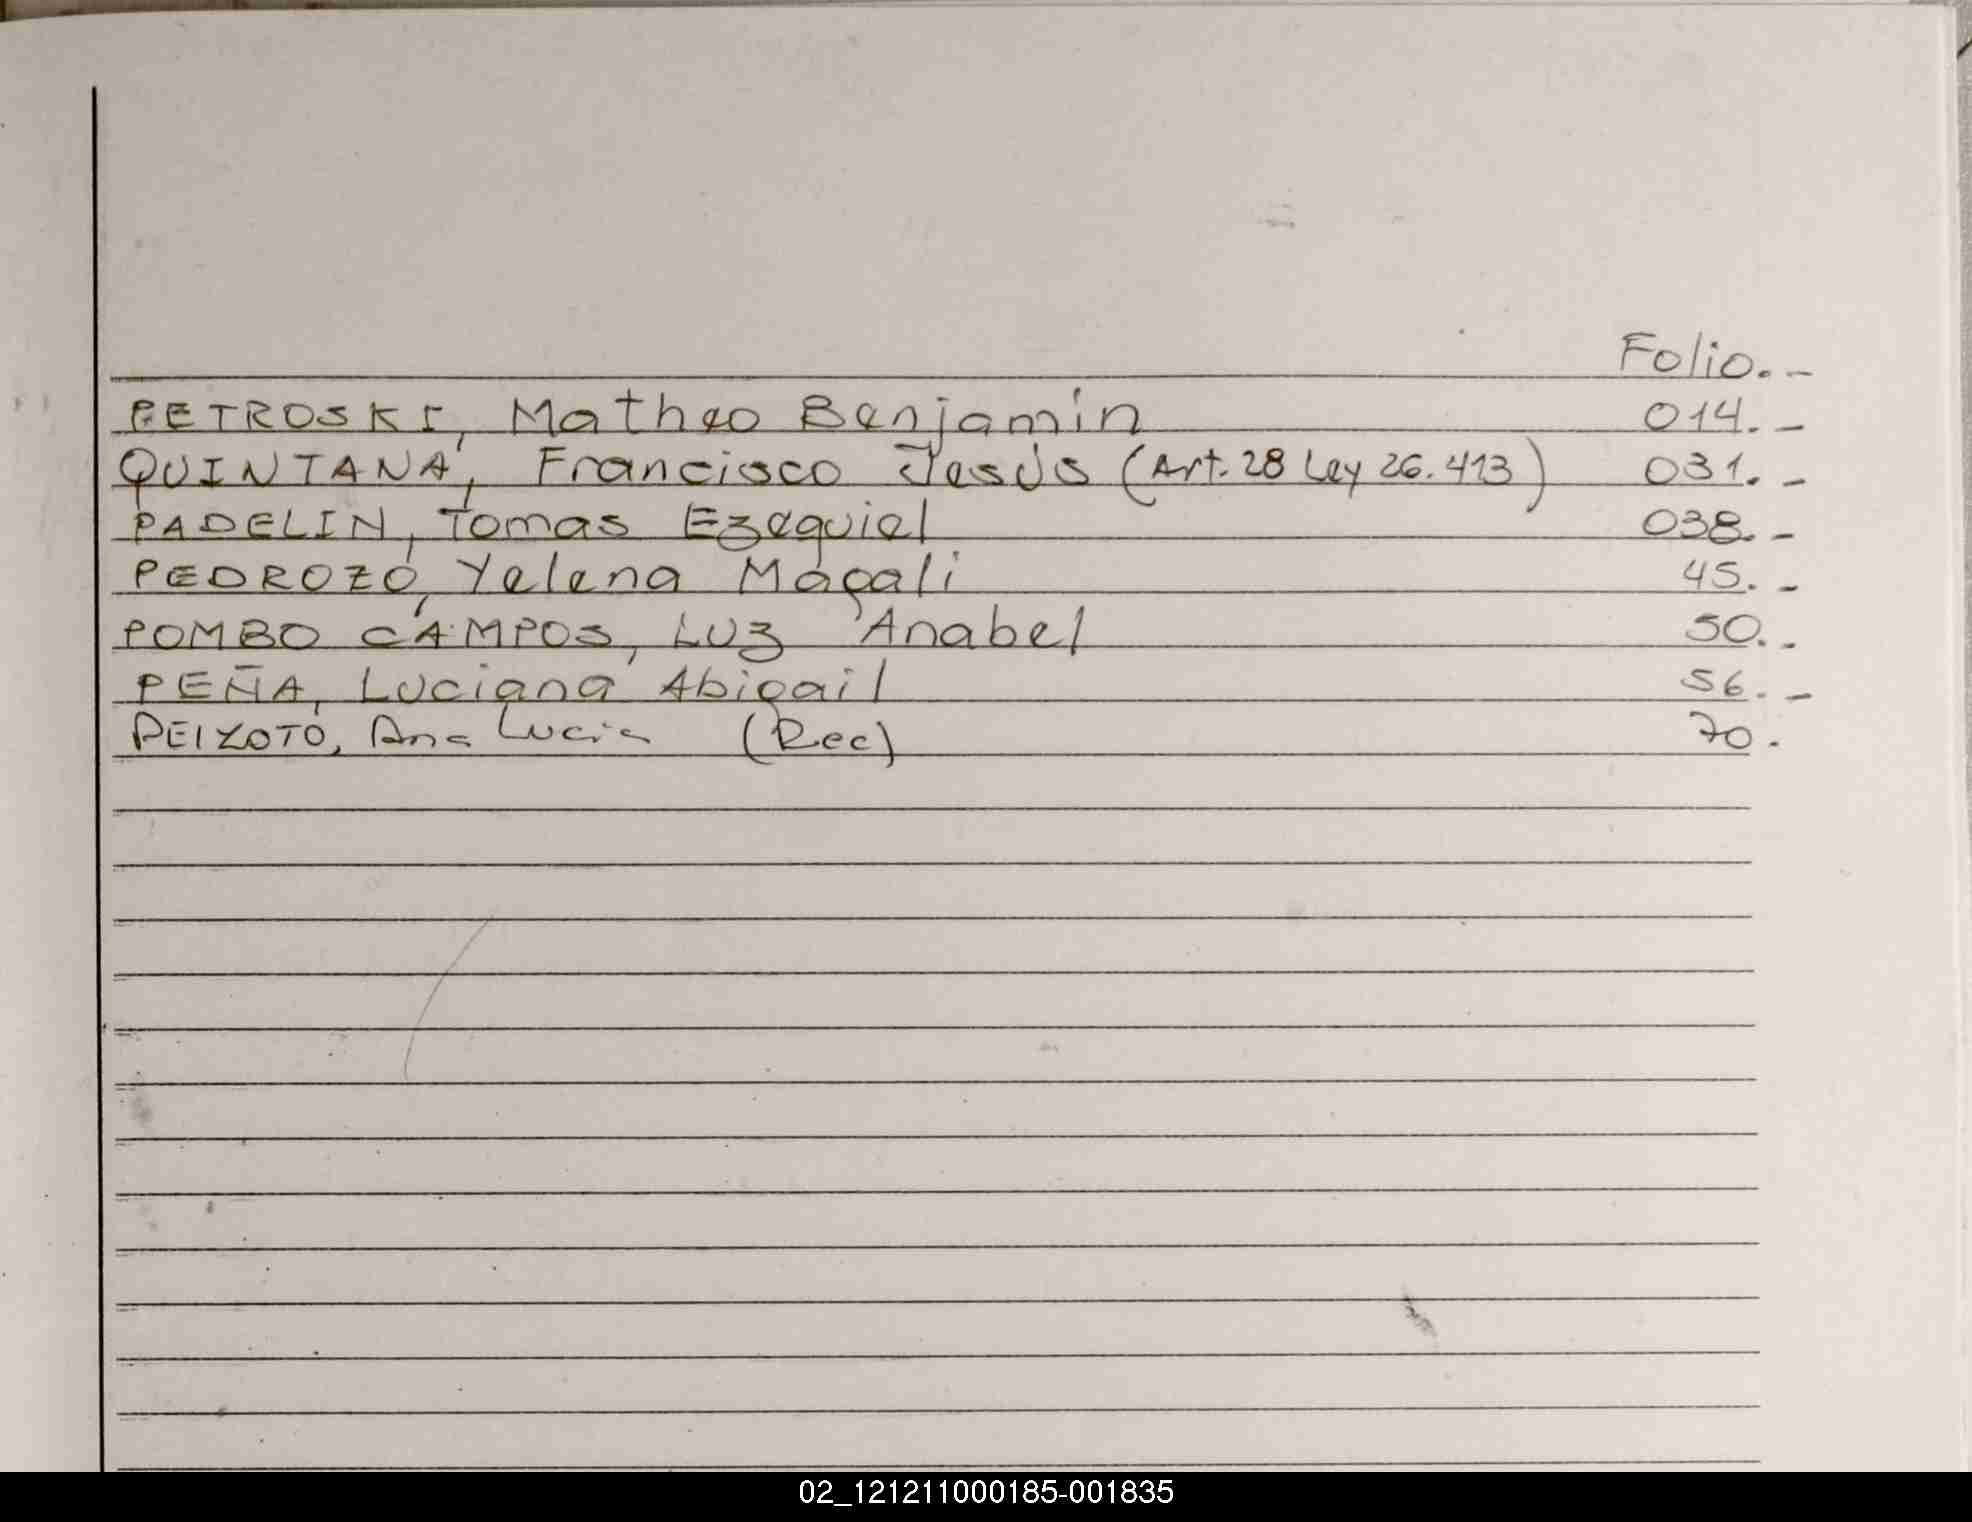 Folio.-
PETROSKI, Matheo Benjamín 014.-
QUINTANA, Francisco Jesús (Art. 28 Ley 26.413) 031.-
PADELIN, Tomas Ezequiel 038.-
PEDROZO, Yelena Magali 45.-
POMBO CAMPOS, Luz Anabel 50.-
PEÑA, Luciana Abigail 56.-
PEIXOTO, Ana Lucia (Rec) 70.
02_121211000185-001835